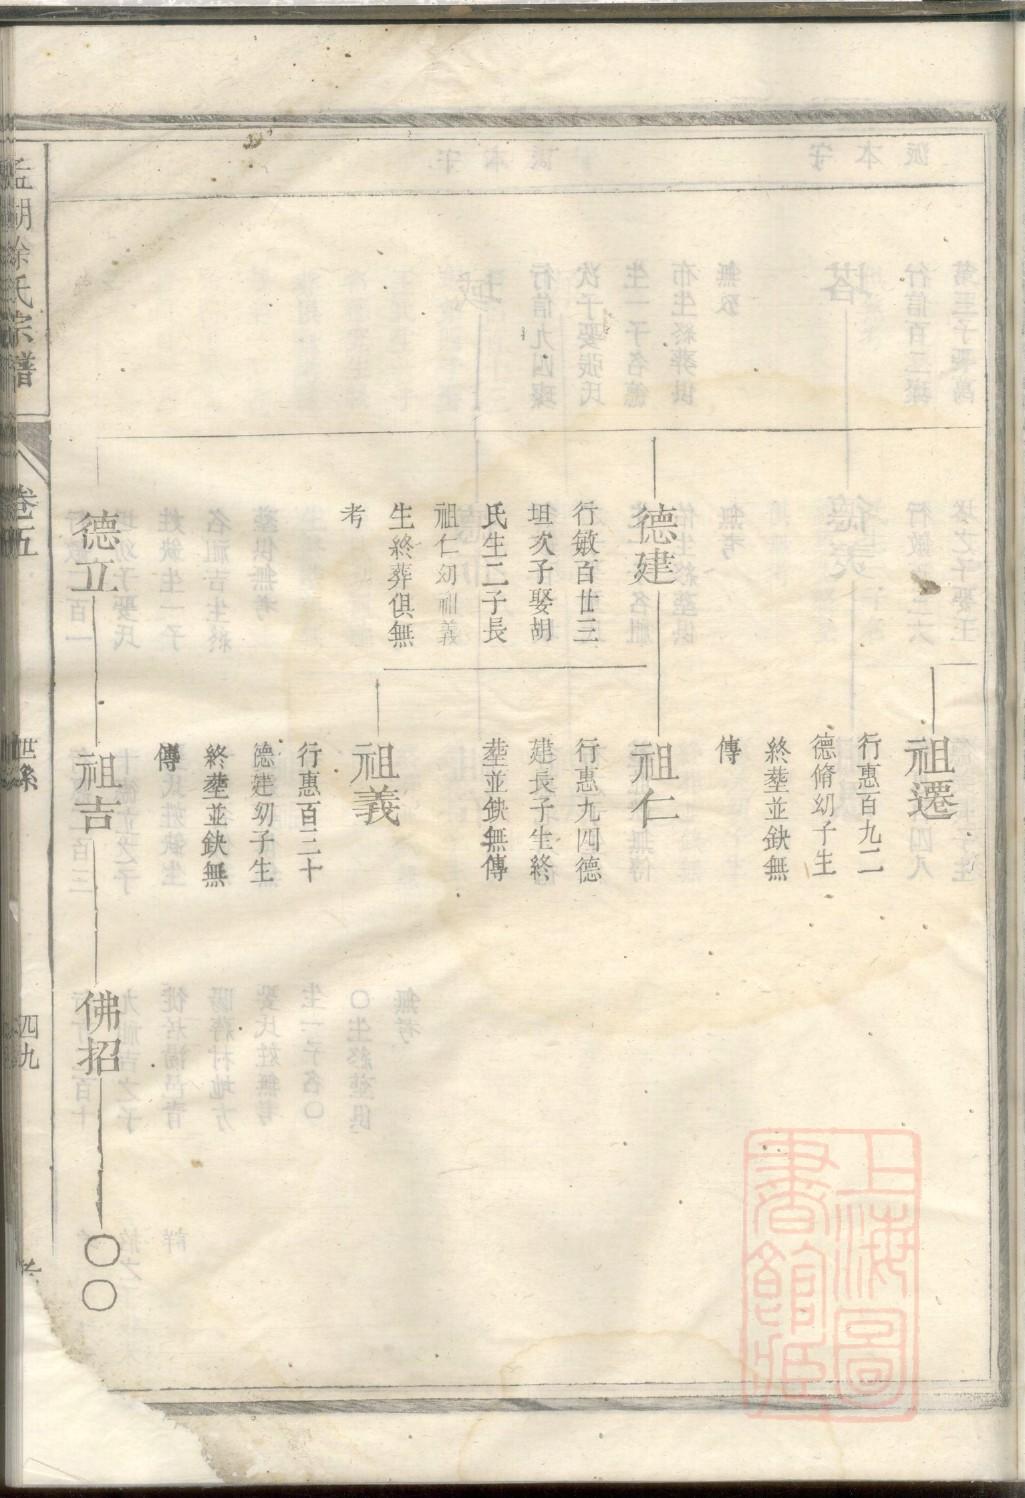 祖遷
行惠百九二
德脩幼子生
終塟並鈌無
傳
德建
行敏百廿三
坦次子娶胡
氏生二子長
祖仁幼祖義
生終葬俱無
考
祖仁
行惠九四德
建長子生終
塟並鈌無傳
祖義
行惠百三十
德建幼子生
終塟並鈌無
傳
德立
祖吉
佛招
〇〇
湖徐氏宗譜
卷五
世系
四九
上海圖
書館藏